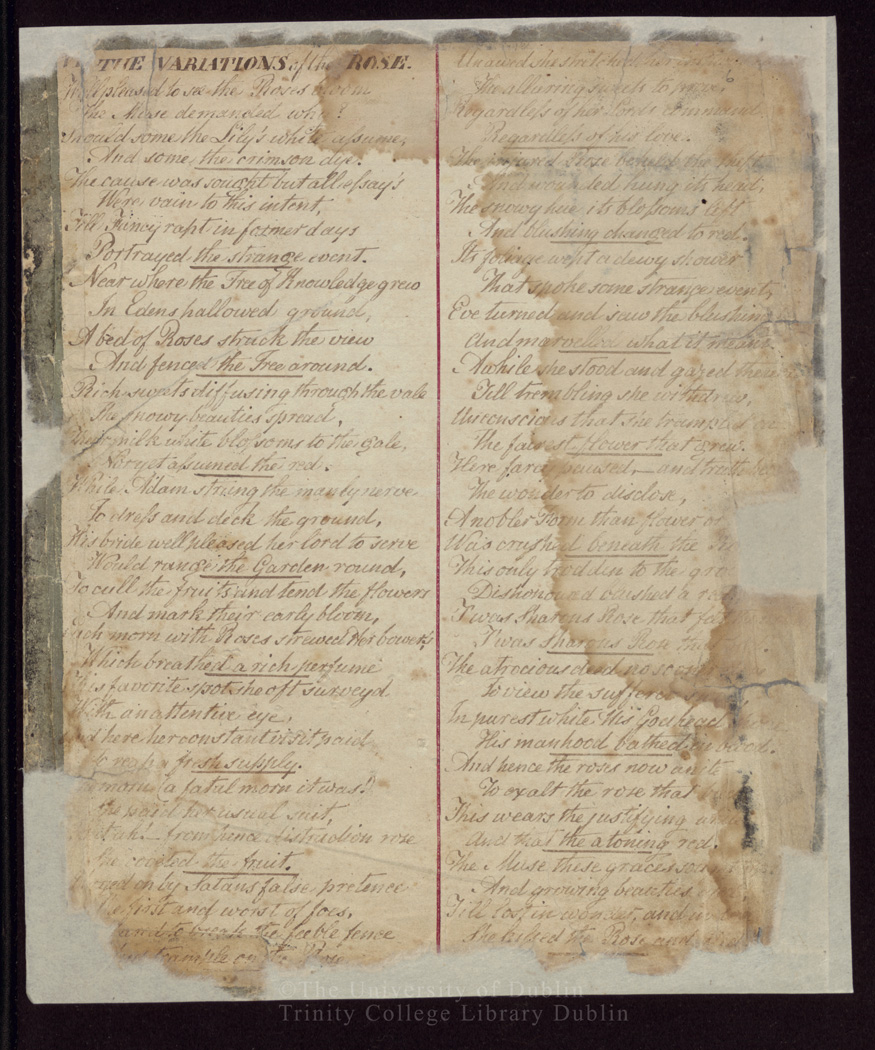 THE VARIATIONS of the ROSE.
pleased to see the Roses bloom
The Muse demanded why?
Should some the Lily's white assume,
And some the crimson dye.
The cause was sought but all essay's
Were vain to this intent,
Till Fancy rapt in former days
Portrayed the strange event.
Near where the Tree of Knowledge grew
In Edens hallowed ground,
A bed of Roses struck the view
And fenced the Tree around.
Rich sweets diffusing through the vale
The snowy beauties spread,
Their milk white blossoms to the gale,
Nor yet assumed the red.
While Adam strung the manly nerve
To dress and deck the ground,
His bride well pleased her lord to serve
Would range the Garden round,
To cull the fruits and tend the flowers
And mark their early bloom,
Each morn with Roses strewed Her bowers,
Which breathed a rich perfume
This favorite spot she oft survey'd
With an attentive eye,
And here her constant visit paid
To reap a fresh supply.
morn (a fatal morn it was!)
She paid her usual suit,
ah! from hence distraction rose
She coveted the fruit.
on by Satans false pretence
The first and worst of foes,
to break the feeble fence
trample on the Rose
Unawed she stretched her
The alluring sweets to prove
Regardless of her Lords command
Regardless of his love.
The injured Rose bewail'd the
And wounded hung its head,
The snowy hue its blossoms left
And blushing changed to red.
Its foliage wept a dewy shower
That spoke some strange event,
Eve turned and saw the blushing
And marvelled what it meant.
Awhile she stood and gazed
Till trembling she withdrew,
Unconscious that she trampled
The fairest flower that grew.
Here fancy paused,— and truth
The wonder to disclose,
A nobler Form than flower or
Was crushed beneath the
This only trodden to the
Dishonoured blushed a
T'was Sharons Rose that
T'was Sharons Rose
The atrocious deed no
To view the sufferer
In purest white His Godhead
His manhood bathed in blood.
And hence the roses now unite
To exalt the rose that
This wears the justifying
And that the atoning red.
The Muse these graces
And growing beauties
Till lost in wonder, and in
She kissed the Rose and
©The University of Dublin
Trinity College Library Dublin